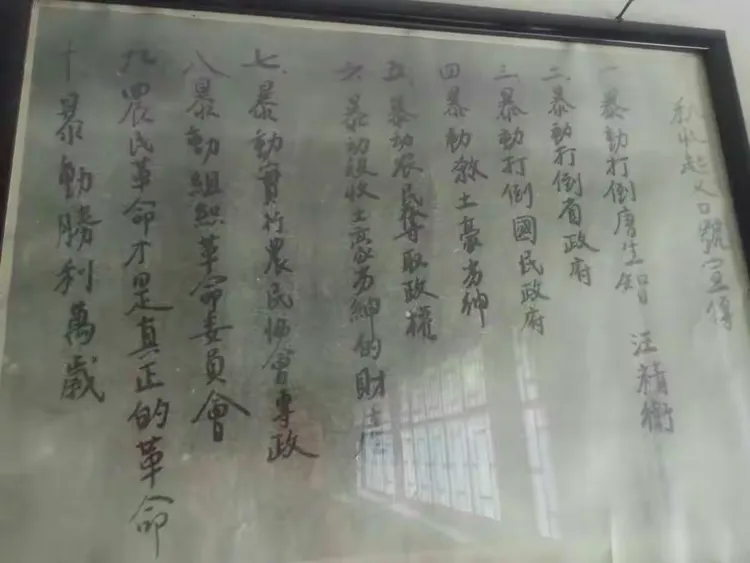 秋收起义口號宣傳
一暴動打倒唐生智 汪精衛
二暴動打倒省政府
三暴動打倒國民政府
四暴動殺土豪劣紳
五暴动农民奪取政權
六暴动没收土豪劣紳的財
七暴動實行農民協會專政
八暴動組織革命委員會
九農民革命才是真正的革命
十暴動勝利萬歲